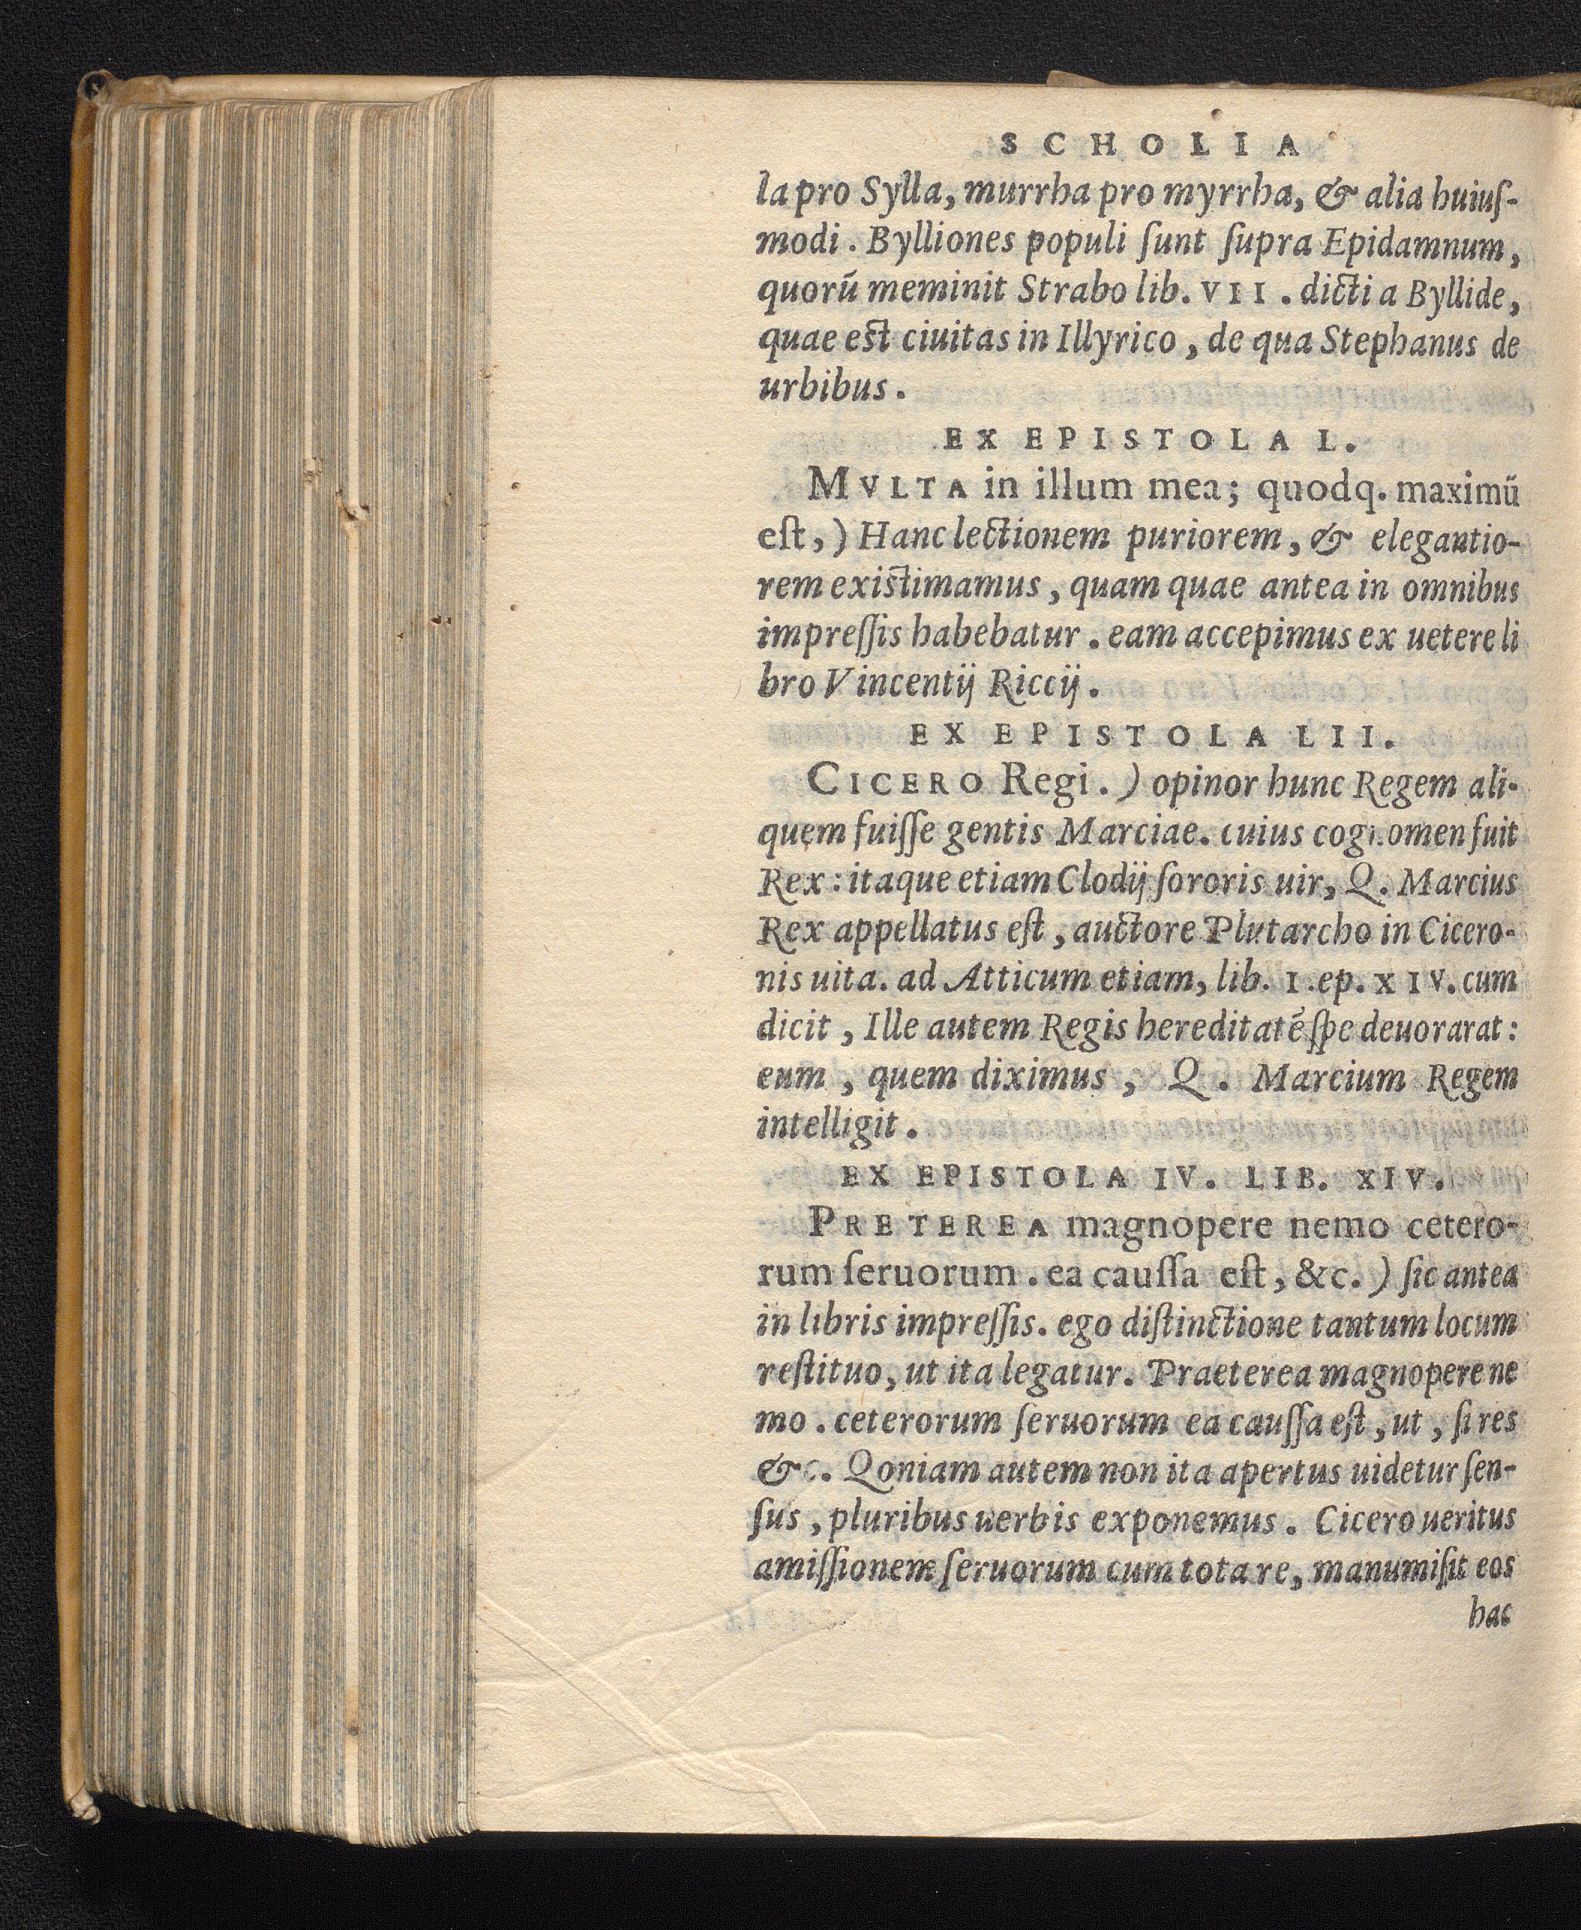 SCHOLIA
la pro Sylla, murrha pro myrrha, & alia huiuſ-
modi. Bylliones populi ſunt ſupra Epidamnum,
quorũ meminit Strabo lib. VII. dicti a Byllide,
quae est ciuitas in Illyrico, de qua Stephanus de
urbibus.
EX EPISTOLA L.
MVLTA in illum mea; quodq. maximũ
eſt,) Hanc lectionem puriorem, & elegantio-
rem existimamus, quam quae antea in omnibus
impreſſis habebatur. eam accepimus ex uetere li
bro Vincentij Riccij.
EX EPISTOLA LII.
CICERO Regi.) opinor hunc Regem ali-
quem fuiſſe gentis Marciae. cuius cognomen fuit
Rex: itaque etiam Clodij ſororis uir, Q. Marcius
Rex appellatus eſt, auctore Plutarcho in Cicero-
nis uita. ad Atticum etiam, lib. I. ep. XIV. cum
dicit, Ille autem Regis hereditatẽ ſpe deuorarat:
eum, quem diximus, Q. Marcium Regem
intelligit.
EX EPISTOLA IV. LIB. XIV.
PRETEREA magnopere nemo cetero-
rum ſeruorum. ea cauſſa eſt, &c.) ſic antea
in libris impreſſis. ego diſtinctione tantum locum
reſtituo, ut ita legatur. Praeterea magnopere ne
mo. ceterorum ſeruorum ea cauſſa eſt, ut, ſi res
&c. Qoniam autem non ita apertus uidetur ſen-
ſus, pluribus uerbis exponemus. Cicero ueritus
amiſſionem ſeruorum cum tota re, manumiſit eos
hac